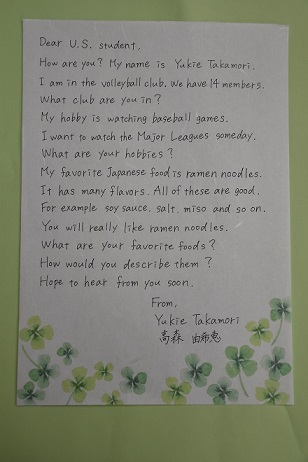 Dear U.S. student,
How are you? My name is Yukie Takamori.
I am in the volleyball club. We have 14 members.
What club are you in?
My hobby is watching baseball games.
I want to watch the Major Leagues someday.
What are your hobbies?
My favorite Japanese food is ramen noodles.
It has many flavors. All of these are good.
For example soy sauce, salt, miso and so on.
You will really like ramen noodles.
What are your favorite foods?
How would you describe them?
Hope to hear from you soon.
From,
Yukie Takamori
高森 由希恵